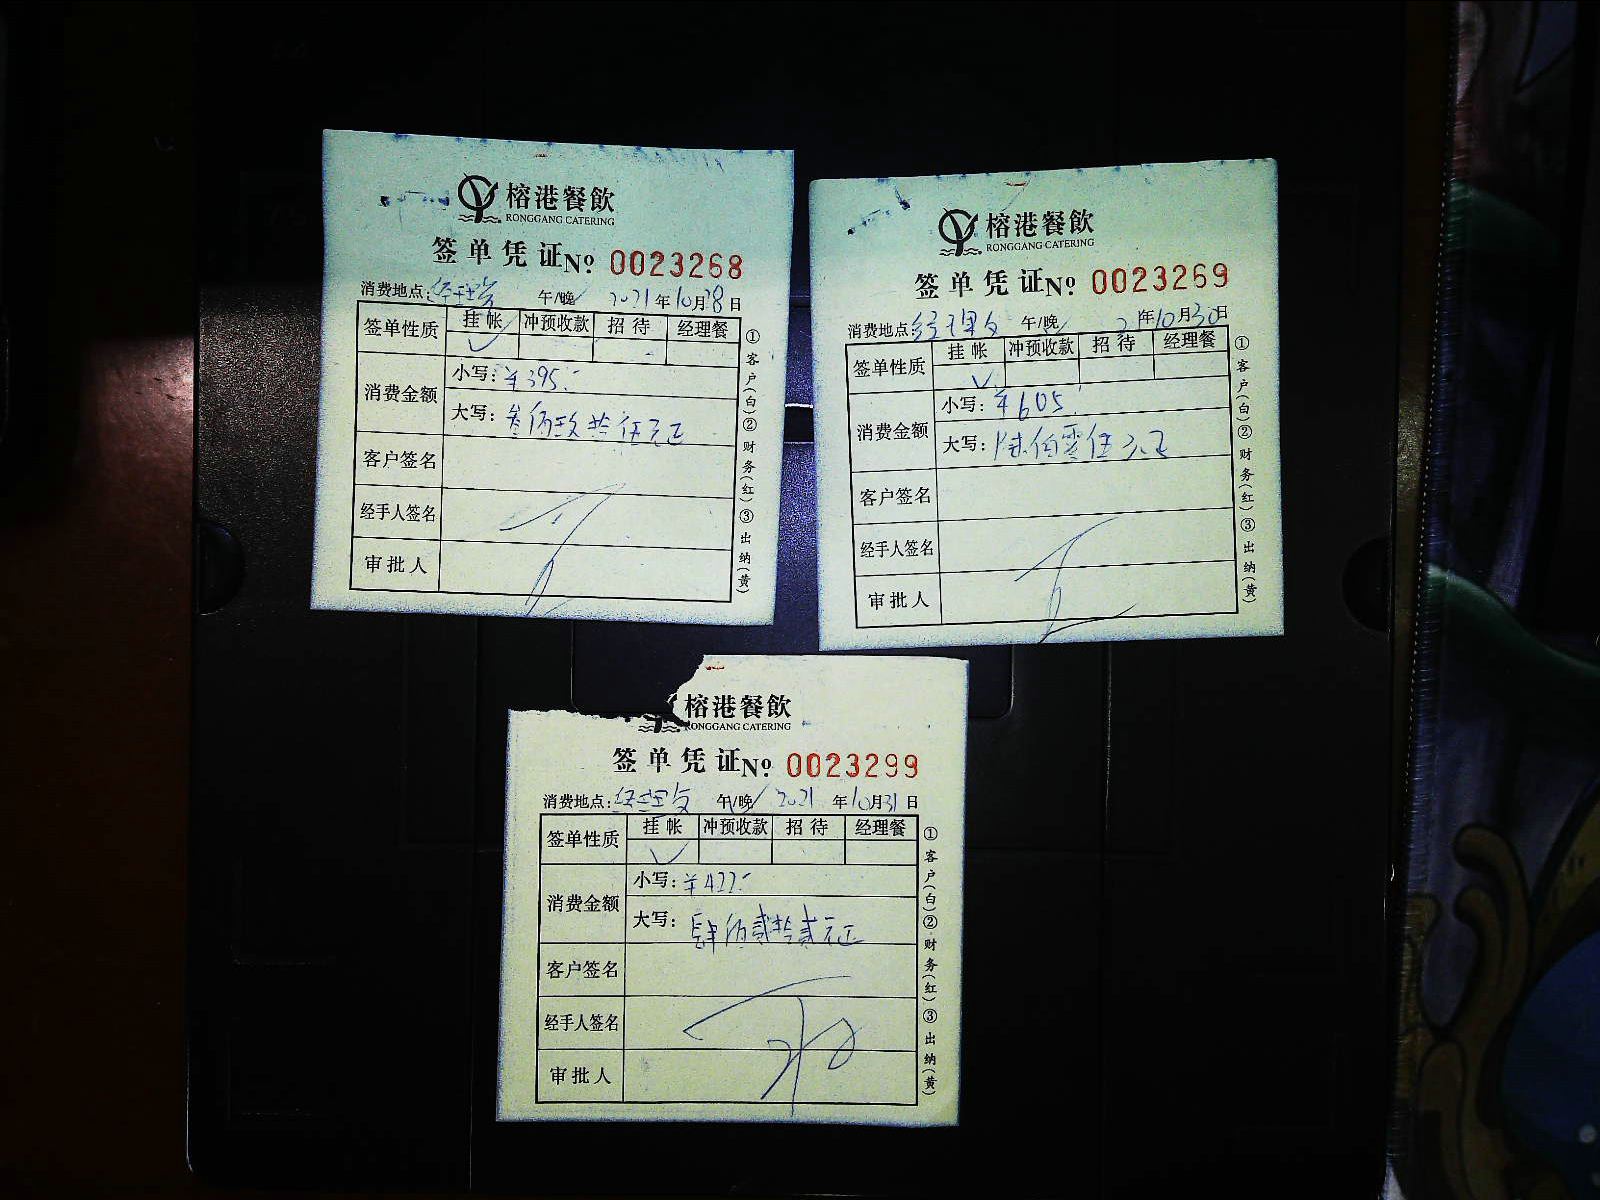 榕港餐飲
RONGGANG CATERING
签单凭证No 0023268
消费地点: 午/晚 2021年10月28日
签单性质 挂帐 冲预收款 招待 经理餐
消费金额 小写: ¥395.-
大写: 叁佰玖拾伍元正
客户签名
经手人签名
审批人
①客户(白)②财务(红)③出纳(黄)
榕港餐飲
RONGGANG CATERING
签单凭证No 0023269
消费地点: 午/晚 21年10月30日
签单性质 挂帐 冲预收款 招待 经理餐
消费金额 小写: ¥605.
大写: 陆佰零伍元正
客户签名
经手人签名
审批人
①客户(白)②财务(红)③出纳(黄)
榕港餐飲
RONGGANG CATERING
签单凭证No 0023299
消费地点: 午/晚 2021年10月31日
签单性质 挂帐 冲预收款 招待 经理餐
消费金额 小写: ¥422.-
大写: 肆佰贰拾贰元正
客户签名
经手人签名
审批人
①客户(白)②财务(红)③出纳(黄)